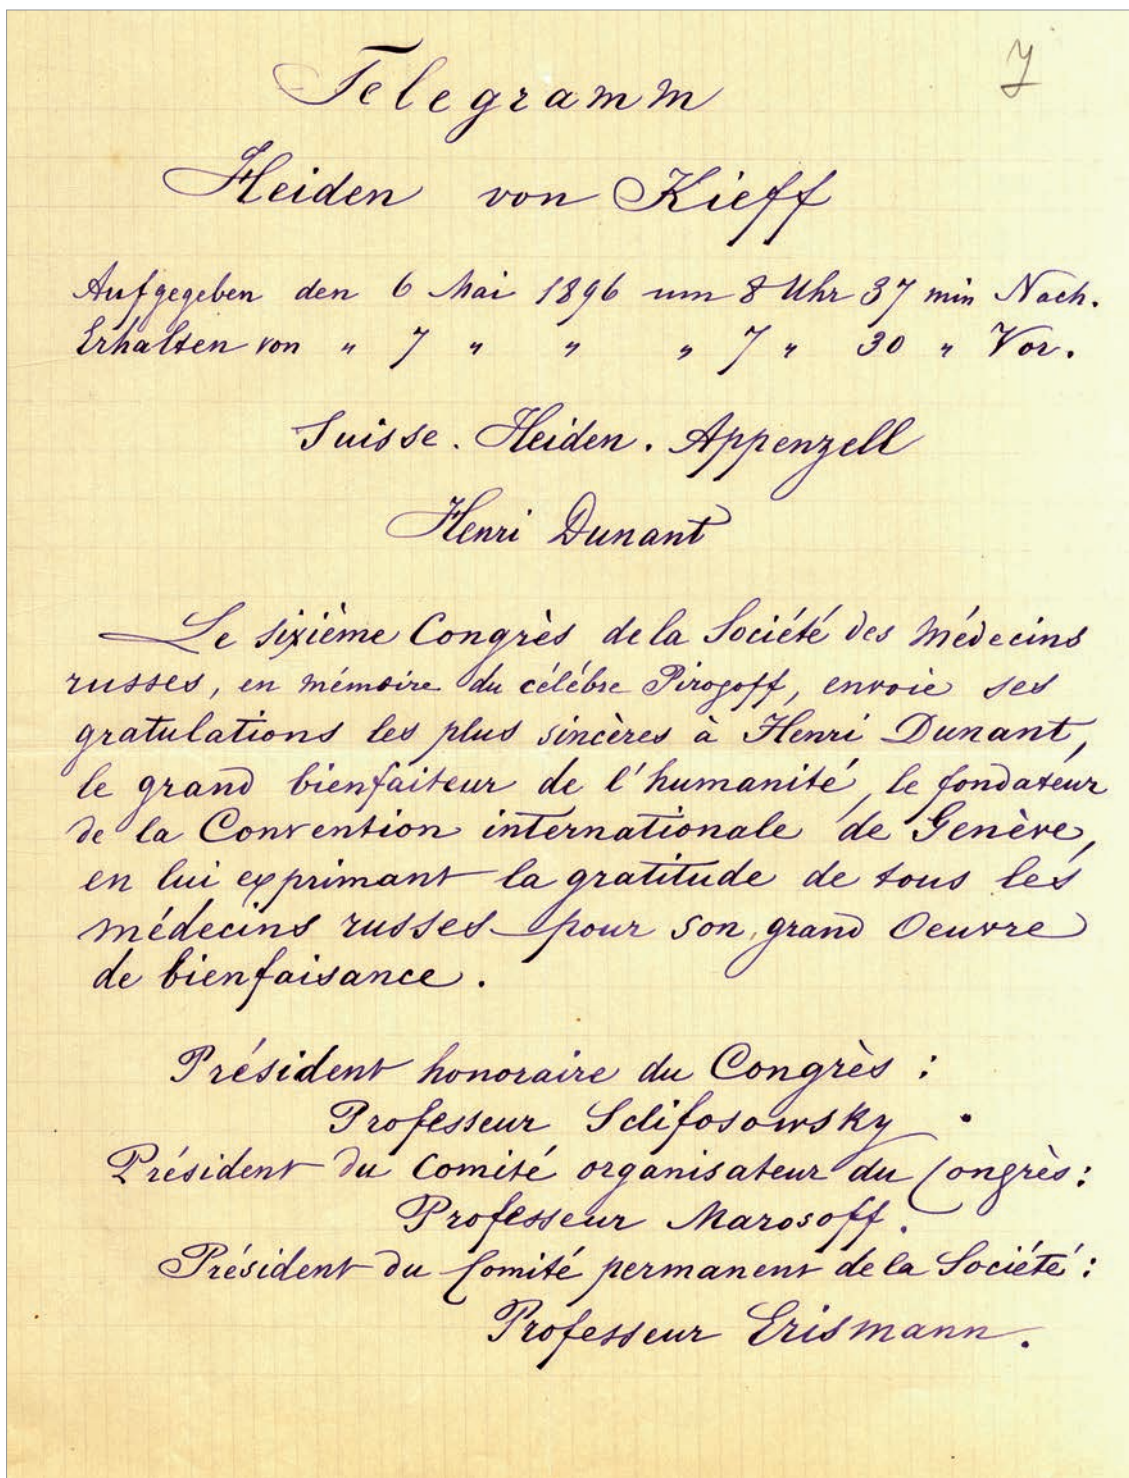 7
Telegramm
Heiden von Kieff
Aufgegeben den 6 Mai 1896 um 8 Uhr 37 min Nach.
Erhalten von " 7 " " " 7 " 30 " Vor.
Suisse. Heiden. Appenzell
Henri Dunant
Le sixième Congrès de la Société des Médecins
russes, en mémoire du célébre Pirogoff, envoie ses
gratulations les plus sincères à Henri Dunant,
le grand bienfaiteur de l'humanité, le fondateur
de la Convention internationale de Genève,
en lui exprimant la gratitude de tous les
médecins russes pour son grand Oeuvre
de bienfaisance.
Président honoraire du Congrès :
Professeur Sclifosowsky .
Président du Comité organisateur du Congrès :
Professeur Marosoff.
Président du Comité permanent de la Société :
Professeur Erismann.